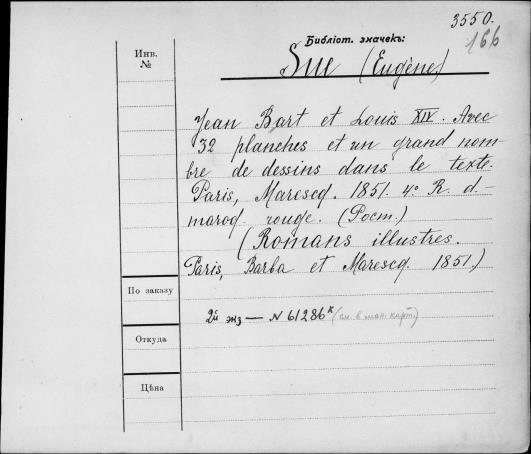 3550.
166
Инв.
№
Библіот. значекъ:
Sue (Eugène)
Jean Bart et Louis XIV. Avec
32 planches et un grand nom-
bre de dessins dans le texte.
Paris, Marescq. 1851. 4° R. d.-
maroq. rouge. (Рост.)
(Romans illustres.
Paris, Barba et Marescq. 1851.)
По заказу
2й экз — N 61286 к (см. в
Откуда
Цѣна